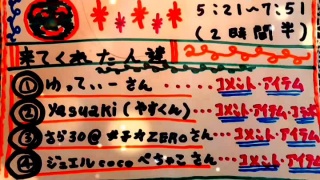 5:21〜7:51
(2時間半)
来てくれた人達
① ゆってぃーさん ・・・・コメント・アイテム
② Yasuaki (やすくん) ・・・コメント・アイテム・コラボ
③ さら30@#チ☆ZEROさん・・・コメント・アイテム
④ ジュエルcoco ぺちゃこさん・・・コメント・アイテム